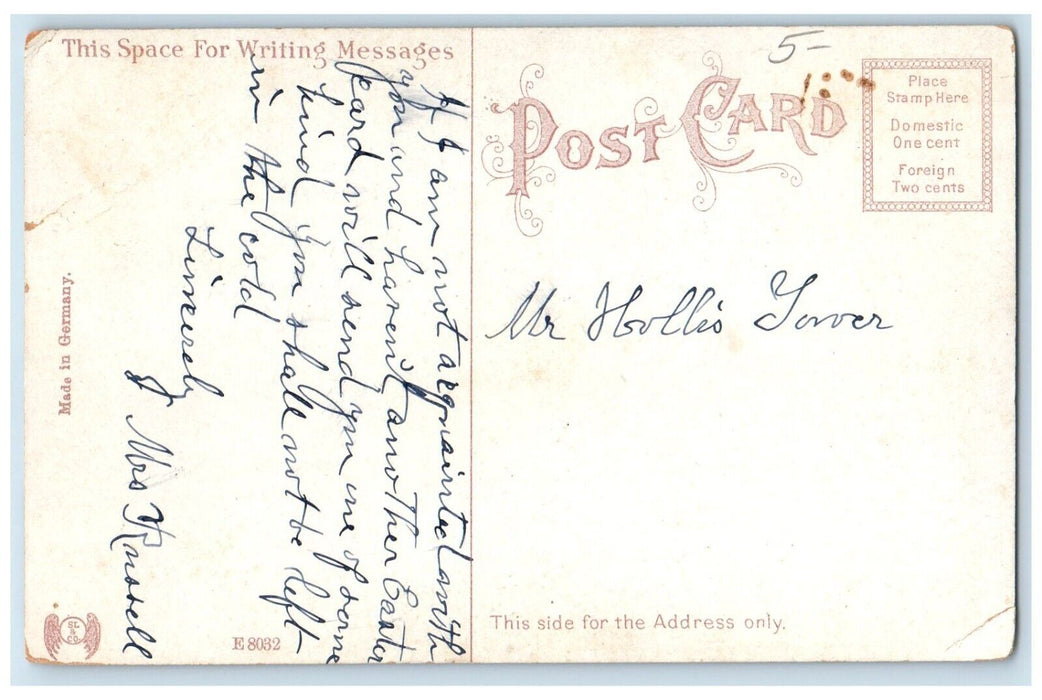 This Space For Writing Messages
If I am not acquainted with
you and haven't another Easter
card will send you one of some
kind you shall not be left
in the cold
Sincerely
Mrs Russell
Made in Germany.
E 8032
5-
POST CARD
Place
Stamp Here
Domestic
One cent
Foreign
Two cents
Mr Hollis Tower
This side for the Address only.